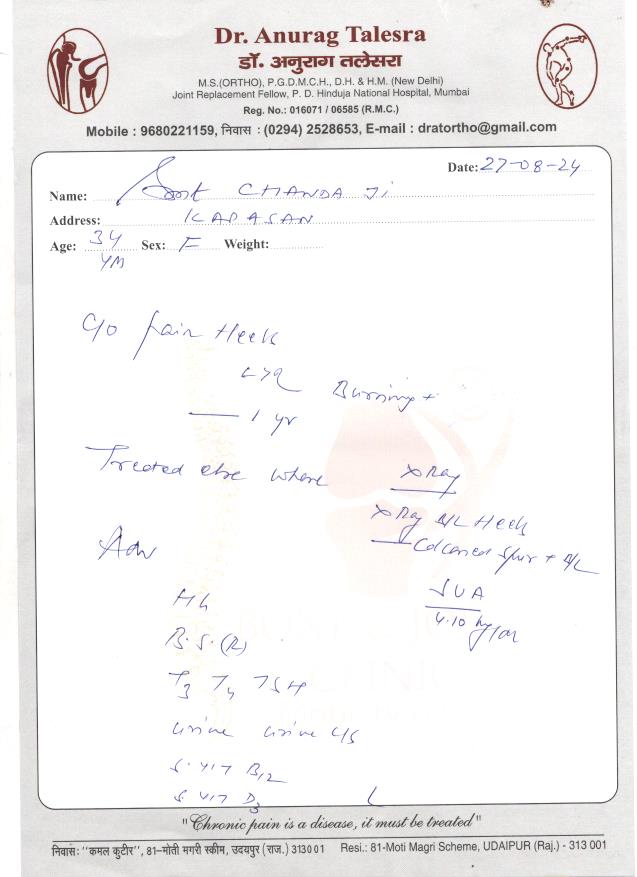 Dr. Anurag Talesra
डॉ. अनुराग तलेसरा
M.S.(ORTHO), P.G.D.M.C.H., D.H. & H.M. (New Delhi)
Joint Replacement Fellow, P. D. Hinduja National Hospital, Mumbai
Reg. No.: 016071 / 06585 (R.M.C.)
Mobile : 9680221159, निवास : (0294) 2528653, E-mail : dratortho@gmail.com
Date: 27-08-24
Name: Smt CHANDA Ji
Address: KAPASAN
Age: 34 Sex: F Weight:
YM
C/o Pain Heels
L>R Burning +
1 yr
Treated else where
X Ray
X Ray B/L Heels
Calcaneal Spur + B/L
Adv
S U A
4.10
Hb
B.S.(R)
T3 T4 TSH
Urine Urine C/S
S. VIT B12
S. VIT D3
"Chronic pain is a disease, it must be treated"
निवास: "कमल कुटीर", 81-मोती मगरी स्कीम, उदयपुर (राज.) 313001 Resi.: 81-Moti Magri Scheme, UDAIPUR (Raj.) - 313 001